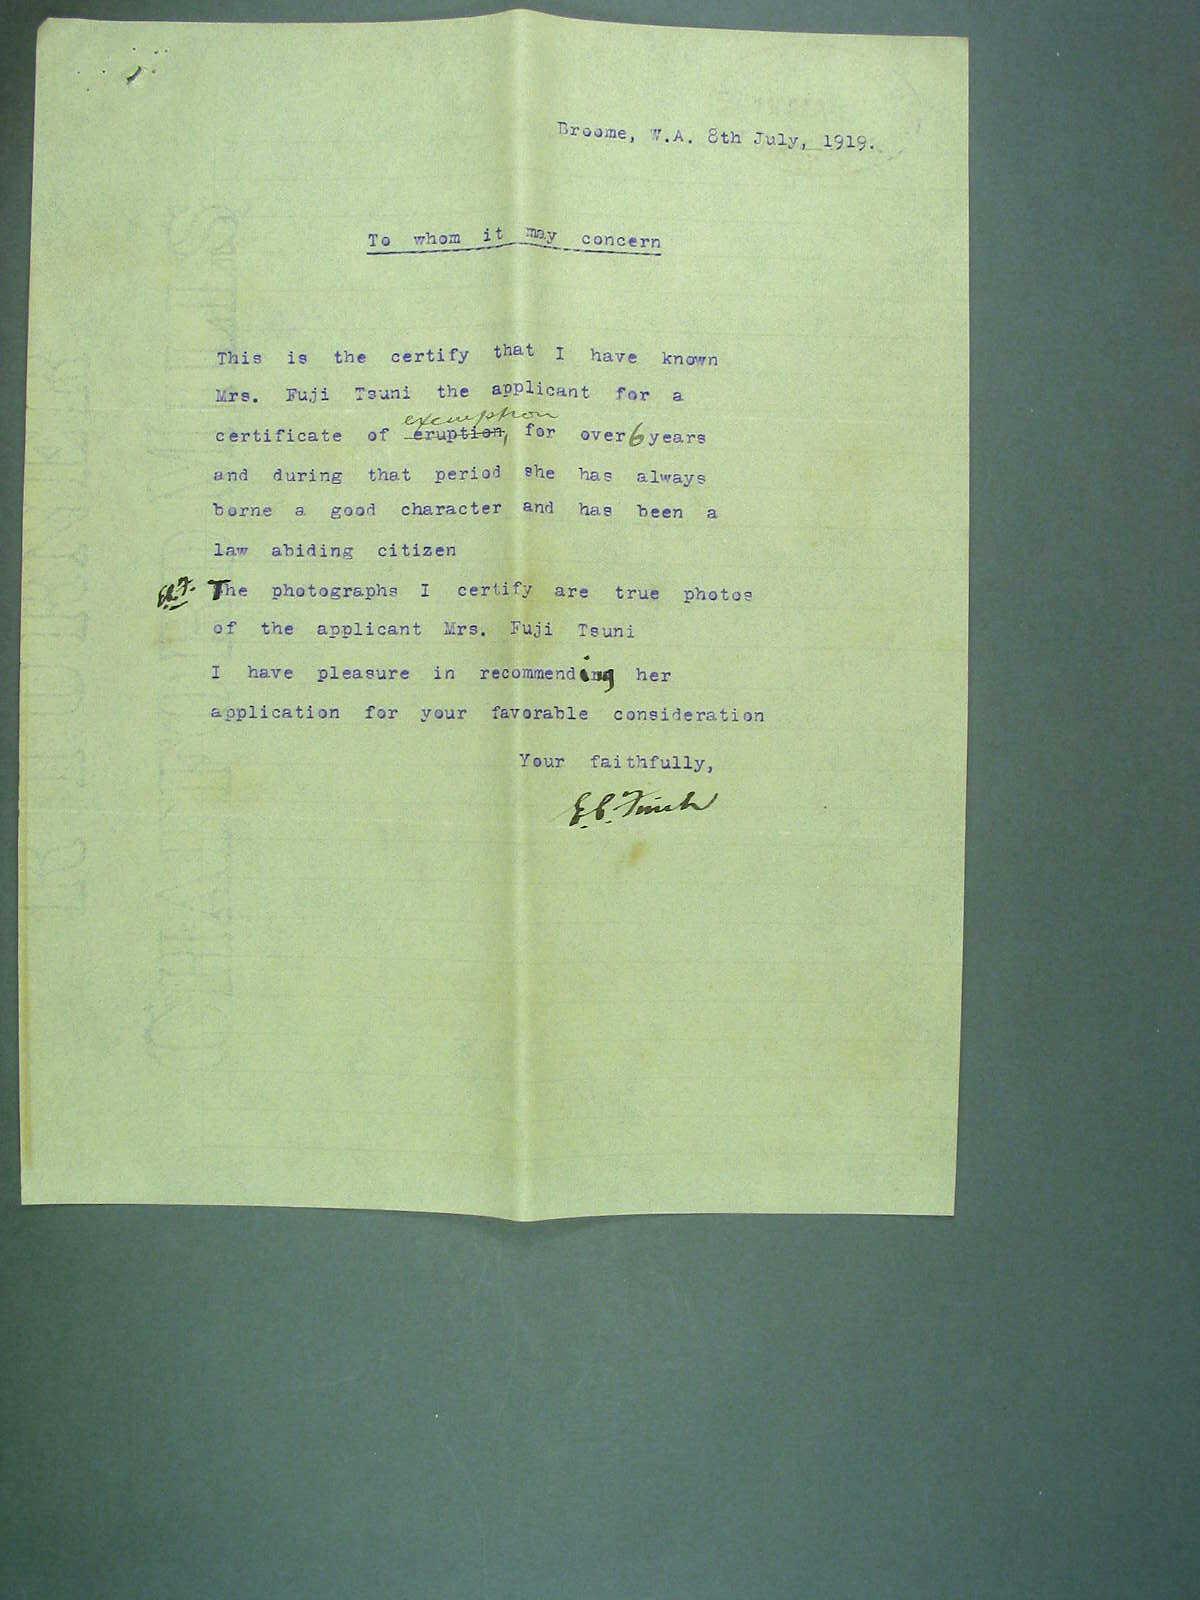 Broome, W.A. 8th July, 1919.
To whom it may concern
This is the certify that I have known
Mrs. Fuji Tsuni the applicant for a
exemption
certificate of eruption, for over 6 years
and during that period she has always
borne a good character and has been a
law abiding citizen
The photographs I certify are true photos
of the applicant Mrs. Fuji Tsuni
I have pleasure in recommending her
application for your favorable consideration
Your faithfully,
E.C. Finch